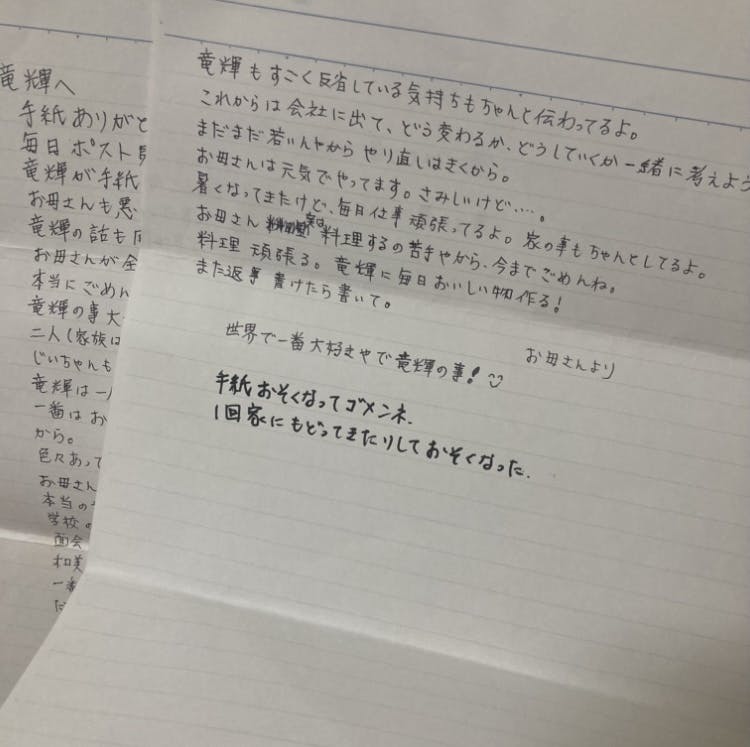 竜輝へ
手紙ありがと
毎日ポスト
竜輝が手紙
お母さんも悪
竜輝の話も
お母さんが全
本当にごめん
竜輝の事大
二人(家族は
じいちゃんも
竜輝は一人
一番はお
から。
色々あって
お母さん
本当の
学校の
面会
和美
一番
竜輝もすごく反省している気持ちもちゃんと伝わってるよ。
これからは会社に出て、どう変わるか、どうしていくか一緒に考えよう
まだまだ若いんやからやり直しはきくから。
お母さんは元気でやってます。さみしいけど‥‥。
暑くなってきたけど、毎日仕事頑張ってるよ。家の事もちゃんとしてるよ。
お母さん 実は 料理するの苦手やから、今までごめんね。
料理 頑張る。竜輝に毎日おいしい物作る!
また返事書けたら書いて。
お母さんより
世界で一番大好きやで竜輝の事!
手紙おそくなってゴメンネ.
1回家にもどってきたりしておそくなった.